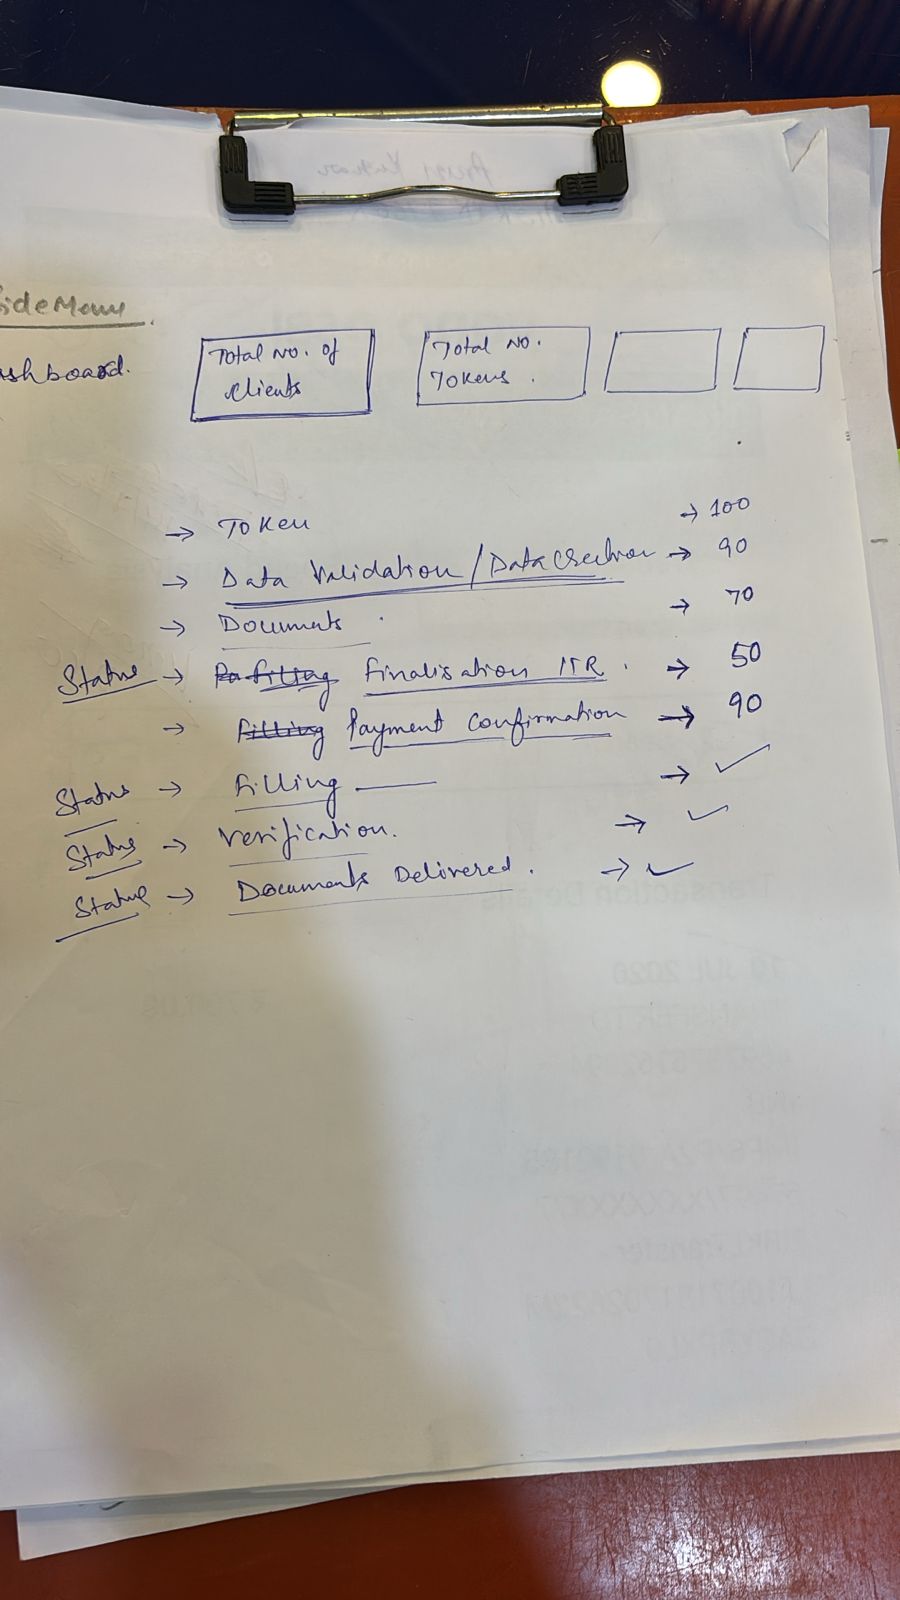 ideMenu
shboard.
Total No. of
Clients
Total No.
Tokens.
→ Token → 100
→ Data Validation / Data → 90
→ Documents → 70
Status → Finalisation ITR. → 50
→ Payment Confirmation → 90
Status → Filling — → ✓
Status → Verification. → ✓
Status → Documents Delivered. → ✓